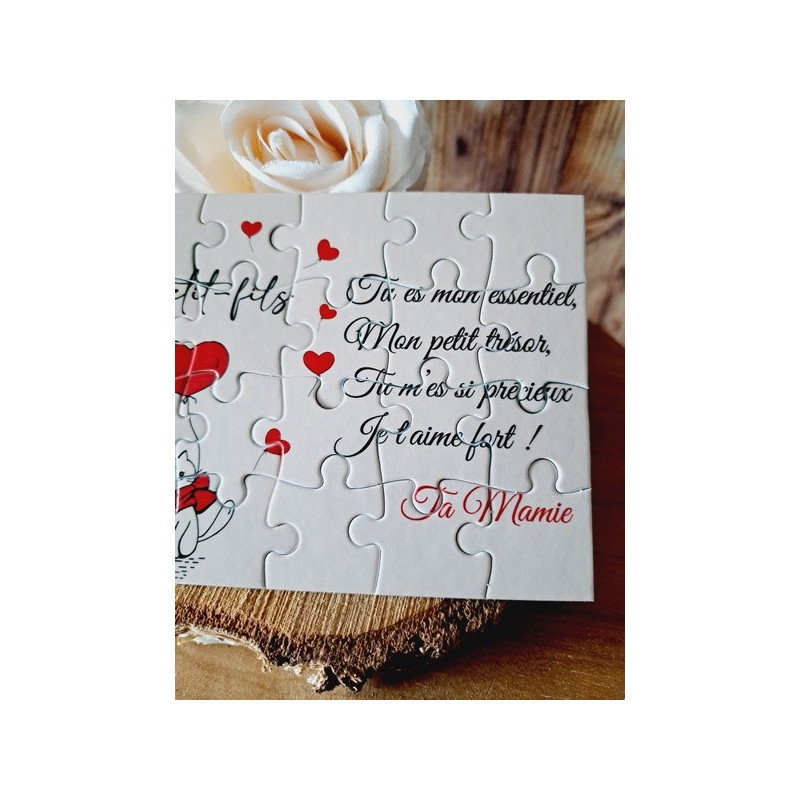 tit-fils
Tu es mon essentiel,
Mon petit trésor,
Tu m'es si précieux
Je t'aime fort !
Ta Mamie